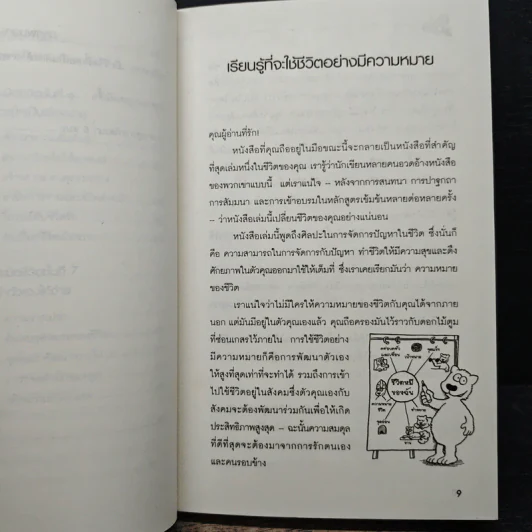 เรียนรู้ที่จะใช้ชีวิตอย่างมีความหมาย
คุณผู้อ่านที่รัก!
หนังสือที่คุณถืออยู่ในมือขณะนี้จะกลายเป็นหนังสือที่สำคัญ
ที่สุดเล่มหนึ่งในชีวิตของคุณ เรารู้ว่านักเขียนหลายคนอวดอ้างหนังสือ
ของพวกเขาแบบนี้ แต่เราแน่ใจ – หลังจากการสนทนา การปาฐกถา
การสัมมนา และการเข้าอบรมในหลักสูตรเข้มข้นหลายต่อหลายครั้ง
– ว่าหนังสือเล่มนี้เปลี่ยนชีวิตของคุณอย่างแน่นอน
หนังสือเล่มนี้พูดถึงศิลปะในการจัดการปัญหาในชีวิต ซึ่งนั่นก็
คือ ความสามารถในการจัดการกับปัญหา ทำชีวิตให้มีความสุขและดึง
ศักยภาพในตัวคุณออกมาใช้ให้เต็มที่ ซึ่งเราเคยเรียกมันว่า ความหมาย
ของชีวิต
เราแน่ใจว่าไม่มีใครให้ความหมายของชีวิตกับคุณได้จากภาย
นอก แต่มันมีอยู่ในตัวคุณเองแล้ว คุณถือครองมันไว้ราวกับดอกไม้ตูม
ที่ซ่อนเกสรไว้ภายใน การใช้ชีวิตอย่าง
มีความหมายก็คือการพัฒนาตัวเอง
ให้สูงที่สุดเท่าที่จะทำได้ รวมถึงการเข้า
ไปใช้ชีวิตอยู่ในสังคมซึ่งตัวคุณเองกับ
สังคมจะต้องพัฒนาร่วมกันเพื่อให้เกิด
ประสิทธิภาพสูงสุด – ฉะนั้นความสมดุล
ที่ดีที่สุดจะต้องมาจากการรักตนเอง
และคนรอบข้าง
ชีวิตหมี
ของฉัน
9